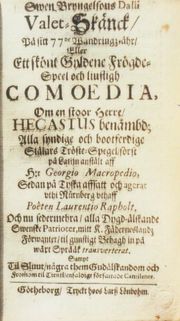 Swen Bryngelsons Dalii
Valet-Skänck/
På sitt 77de Wandrings-åhr/
Eller
Ett skönt Gyldene Frögde-
Speel och liusligh
COMOEDIA,
Om en stoor Herre/
HECASTUS benämbd;
Alla syndige och bootferdige
Siälars Tröste-Spegel först
på Latijn anstält aff
Hr Georgio Macropedio,
Sedan på Tyska affatt och agerat
uthi Nürnberg uthaff
Poëten Laurentio Rapholt,
Och nu sedermehra/ alla Dygd-älskande
Swenske Patrioter, mitt K. Fädernesland;
Förwanter/ til gunstigt Behagh in på
wårt Språåk transverterat.
Sampt
Til Sluut/ några them Gudälskandom och
From om til Christeligh öfnings författade Cantilener.
Götheborg/ Tryckt hoos Lars Löndohm.